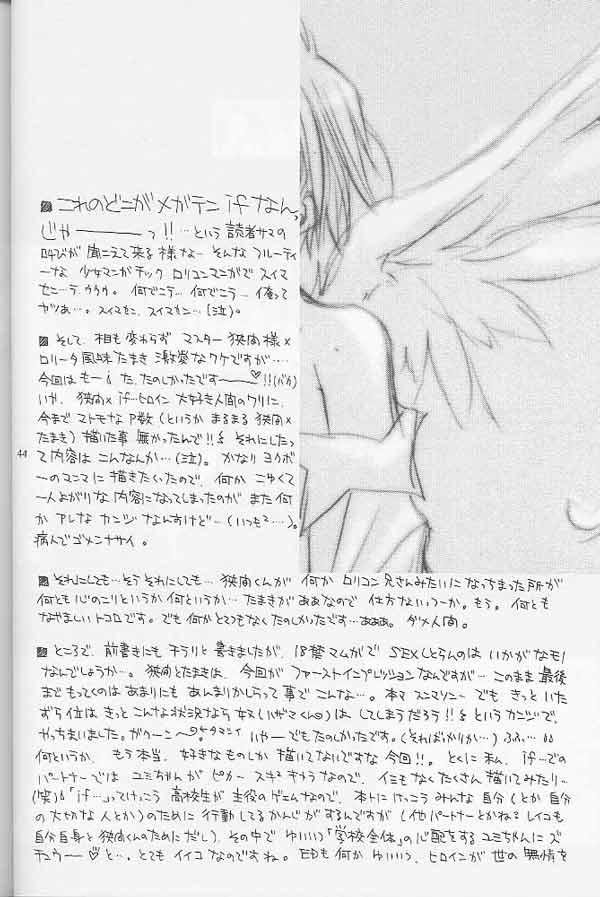 ■これのどこがメガテンifなんっ
じゃーーっ!!…という読者サマの
叫びが聞こえて来る様な…そんなフルーティ
ーな 少女マンガチック ロリコンマンガで スイマ
セン…テ、ウウウ。何でこう…何でこう… 俺って
ヤツぁ…。スイマセン、スイマセン…(泣)。
■そして、相も変わらず マスター狭間様×
ロリータ風味たまき 激愛なワケですが…
今回は もーた、たのしかったですーー♡!!(バカ)
いや、狭間×if…ヒロイン 大好き人間のワリに、
今まで マトモな P数(というか まるまる 狭間×
たまき)描いた事 無かったんで!! それにしたっ
て内容は こんなんか…(泣)。かなり ヨクボ
ーのマニマに 描きたくったので、何か こゆくて
一人よがりな 内容になってしまったのが また何
か アレな カンジ なんすけど…(いつも?…)。
病んで ゴメンナサイ。
44
■それにしても…そう それにしても… 狭間くんが 何か ロリコン兄さんみたいに なっちまった所が
何とも 心のこりというか 何というか… たまきが ああなので 仕方ないっつーか。もう。何とも
なやましいトコロです。でも 何か とてつもなく たのしかったです…あああ。ダメ人間。
■ところで、前書きにも チラリと 書きましたが、18禁マムガで SEXしとらんのは いかがなもり
なんでしょうか…。狭間とたまきは、今回が ファーストインプレッションなんですが… このまま 最後
まで もってくのは あまりにも あんまりかしらって 事で こんな…。 でも きっと いた
ずら位は きっと こんな状況なら はしてしまうだろう!! という カンジで、
やっちまいました。ガウーン いやー でも たのしかったです。(そればかりか…)ふふ…
何というか、もう本当、好きなもの しか 描いてないですな 今回!!。とくに 私、if…での
パートナーでは ユミちゃんが ピカー スキキャラなので、イミもなく たくさん 描いてみたり…
(笑) 「if…」って けっこう 高校生が 主役の ゲエムなので、本トに けっこう みんな 自分(とか 自分
の 大切な人とか)のために 行動してる かんじがするんですが(他パートナーとかね?レイコも
自分自身と 狭間くんのためにだし)、その中で ゆいいつ「学校全体」の心配をする ユミちゃんに ズ
キューー♡と…、とても イイコ なのですね。EDも 何か ゆいいつ、ヒロインが 世の 無情を